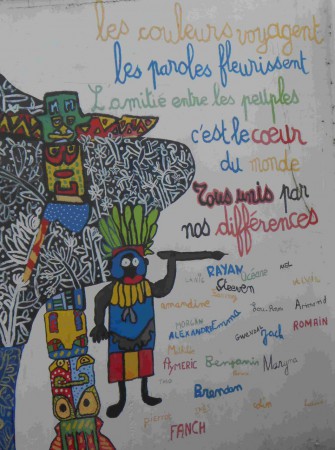 les couleurs voyagent
les paroles fleurissent
L'amitié entre les peuples
c'est le coeur
du monde
Tous unis par
nos différences
RAYAN
Océane
Steeven
amandine
Armand
MORGAN
Emma
ALEXANDRE
Gwenael
Jack
ROMAIN
AYMERIC
Benjamin
Brendan
pierre
FANCH